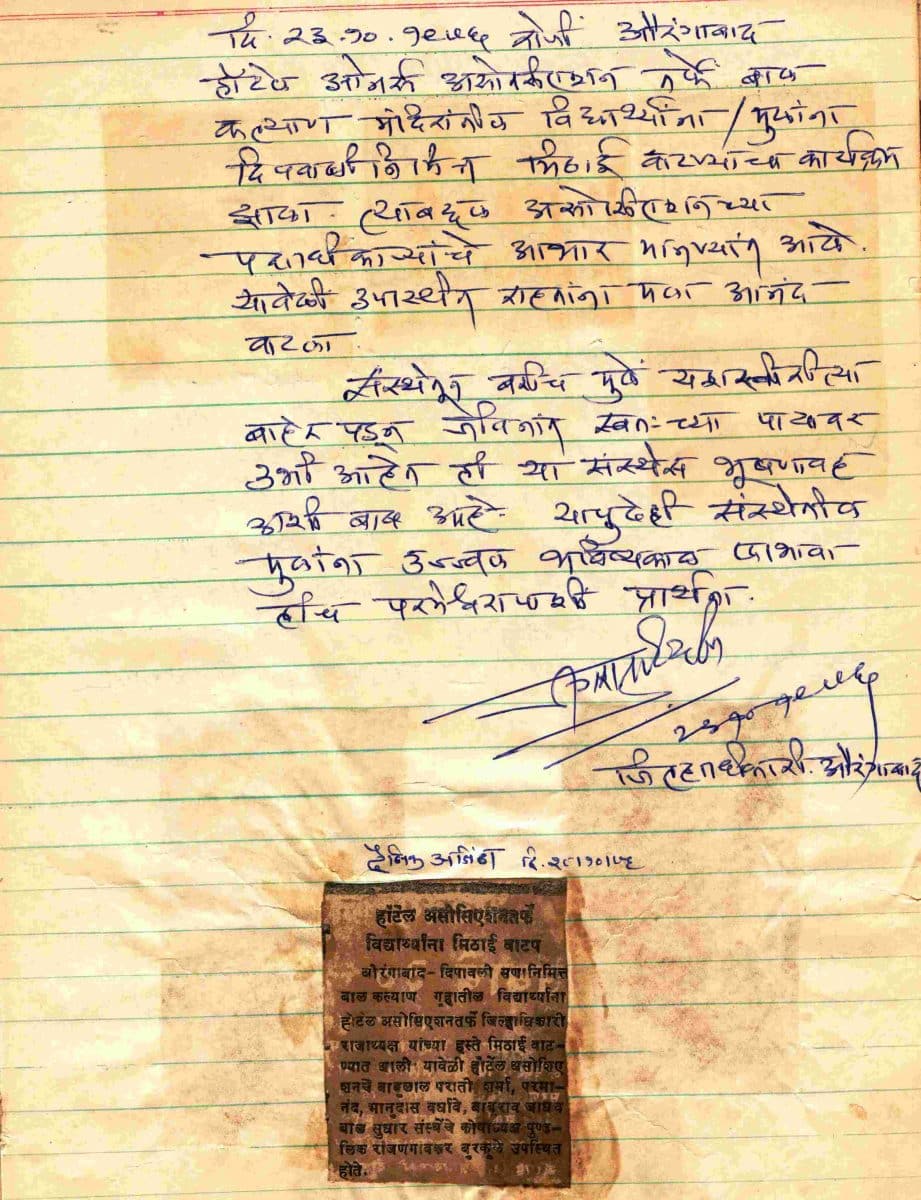 दि. २३.१०.१९७६ रोजी औरंगाबाद
हॉटेल ओनर्स असोसिएशन तर्फे बाल
कल्याण मंदिरातील विद्यार्थ्यांना / मुलांना
दिपवाळी निमित्त मिठाई वाटण्याचा कार्यक्रम
झाला. त्याबद्दल असोसिएशनच्या
पदाधिकाऱ्यांचे आभार मानण्यात आले.
यावेळी उपस्थीत राहतांना मला आनंद
वाटला.
संस्थेतून बरीच मुले यशस्वीरीत्या
बाहेर पडून जीवनांत स्वतःच्या पायावर
उभी आहेत ही या संस्थेस भूषणावह
अशी बाब आहे. यापुढेही संस्थेतील
मुलांना उज्ज्वल भविष्यकाळ लाभावा
हीच परमेश्वरापाशी प्रार्थना.
जिल्हाधिकारी. औरंगाबाद
दैनिक अजिंठा दि.
हॉटेल असोसिएशनतर्फे
विद्यार्थ्यांना मिठाई वाटप
औरंगाबाद- दिपावली सणानिमित्त
बाल कल्याण गृहातील विद्यार्थ्यांना
होटेल असोसिएशनतर्फे जिल्हाधिकारी
राजाध्यक्ष यांच्या हस्ते मिठाई वाट-
ण्यात आली यावेळी हॉटेल असोशिए
शनचे बाबूलाल पराती शर्मा, परमा-
नंद, भानुदास वर्धावे, बाबुराव जाधव
बाल सुधार संस्थेचे कोषाध्यक्ष पुण्ड-
लिक रांजणगावकर बुरकुले उपस्थित
होते.